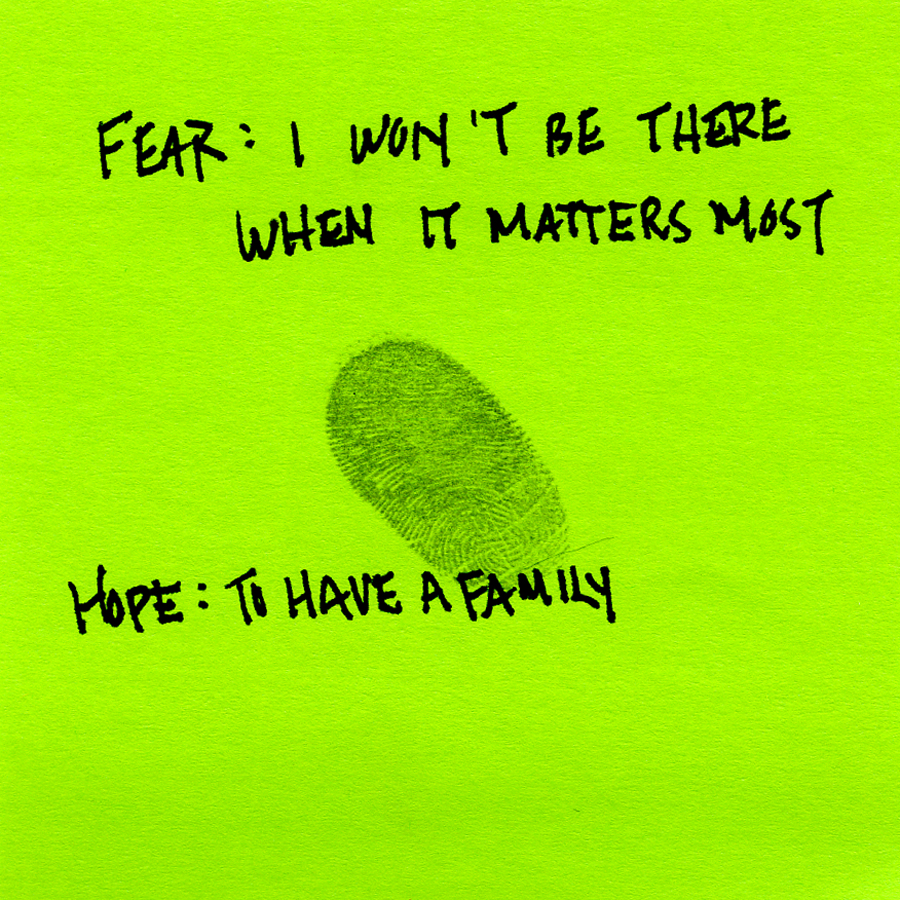 FEAR: I WON'T BE THERE
WHEN IT MATTERS MOST
HOPE: TO HAVE A FAMILY